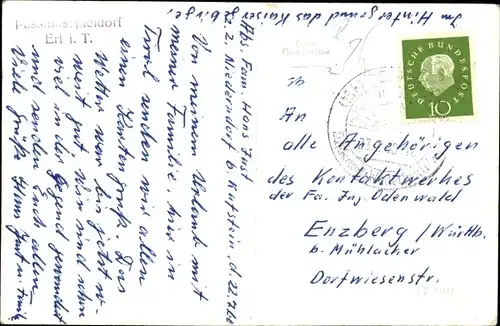 Passionsspieldorf
Erl i. T.
Im Hintergrund das Kaisergebirge.
Abs. Fam. Hans Just
z. Z. Niederndorf b. Kufstein, d. 22.7.60
Von meinem Urlaub mit
meiner Familie hier in
Tirol senden wir allen
einen Kartengruß. Das
Wetter war bis jetzt
meist gut. Wir sind schon
viel in der Gegend gewandert
und senden Euch allen
Viele Grüße Hans Just u. Familie
DEUTSCHE BUNDESPOST
10
An
alle Angehörigen
des Kontaktwerkes
der Fa. Ing. Odenwald
Enzberg /Württb.
b. Mühlacker
Dorfwiesenstr.